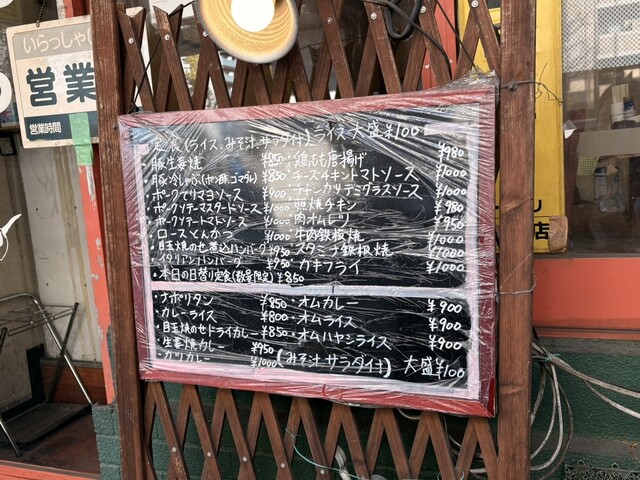 いらっしゃい
営業
営業時間
定食(ライス、みそ汁、サラダ付)ライス大盛¥100
・豚生姜焼 ¥850
・豚冷しゃぶ(ポン酢、ゴマダレ) ¥850
・ポークテリマヨソース ¥900
・ポークソテーマスタードソース ¥1000
・ポークソテートマトソース ¥1000
・ロースとんかつ ¥1000
・目玉焼のせ煮込ハンバーグ ¥950
・イタリアンハンバーグ ¥950
・本日の日替り定食(数量限定)¥850
・鶏もも唐揚げ ¥980
・チーズチキントマトソース ¥1000
・チキンカツデミグラスソース ¥1000
・照焼チキン ¥980
・肉オムレツ ¥950
・牛肉鉄板焼 ¥1000
・スタミナ鉄板焼 ¥1000
・カキフライ ¥1000
・ナポリタン ¥850
・カレーライス ¥800
・目玉焼のせドライカレー ¥850
・生姜焼カレー ¥950
・カツカレー ¥1000
・オムカレー ¥900
・オムライス ¥900
・オムハヤシライス ¥900
(みそ汁サラダ付) 大盛¥100
店